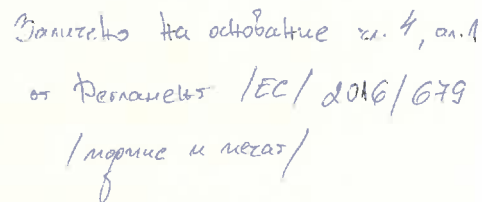 Заличено на основание чл. 4, ал. 1
от Регламент /ЕС/ 2016/679
/подпис и печат/